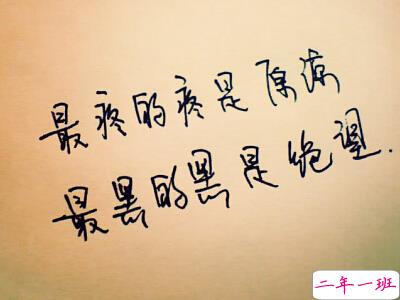 最疼的疼是原谅
最黑的黑是绝望.
二年一班